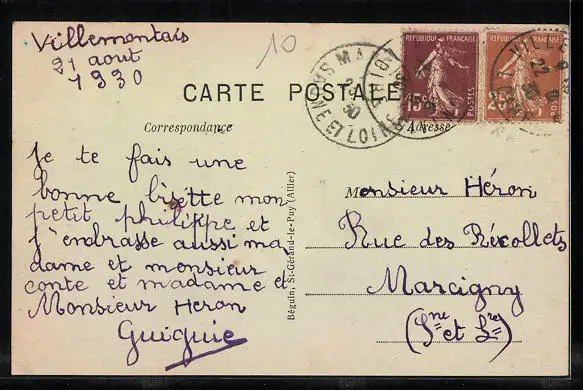 Villemontais
21 aout
1930
10
CARTE POSTALE
REPUBLIQUE FRANÇAISE
15
POSTES
REPUBLIQUE FRANÇAISE
Correspondance
Adresse
Je te fais une
bonne bisette mon
petit philippe et
j'enbrasse aussi ma
dame et monsieur
conte et madame et
Monsieur Heron
Guiguie
Béguin, St-Gérand-le-Puy (Allier)
Monsieur Héron
Rue des Récollets
Marcigny
(Sne et Lre)